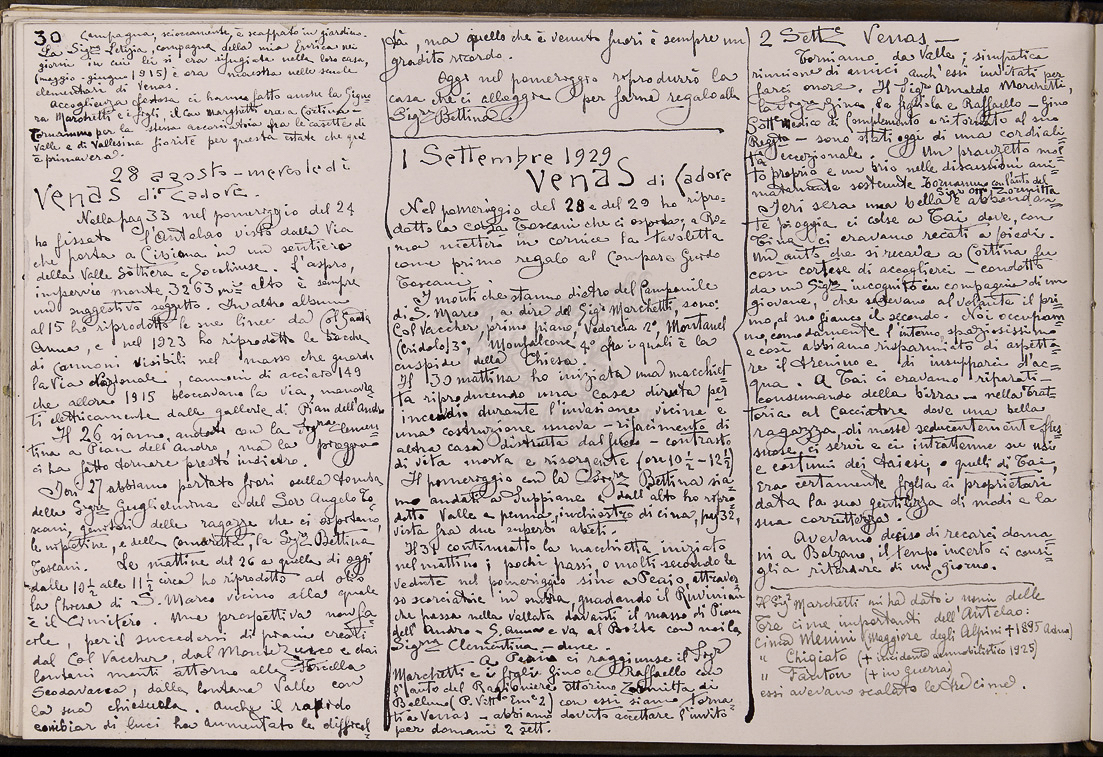 30
Campagna, scioccamente, è scappato in giardino.
La Sigra Letizia, compagna della mia Enrica nei
giorni in cui lei si era rifugiata nella loro casa,
(maggio-giugno 1915) è ora maestra nelle scuole
elementari di Venas.
Accoglienza festosa ci hanno fatto anche la Signo=
ra Marchetti e i figli, il Cav Marchetti era a Cortina.=
Tornammo per la stessa accorciatoia fra le casette di
Valle e di Vallesina fiorite per questa estate che qui
è primavera.
28 agosto - mercoledì
Venas di Cadore
Nella pag 33 nel pomeriggio del 24
ho fissato l'Antelao visto dalla Via
che porta a Cibiana in un sentiero
della Valle Sottiera e Socolinse. L'aspro,
impervio monte, 3263 m= alto è sempre
un suggestivo soggetto. In altro album
al 15 ho riprodotto le sue linee da Col Sant'
Anna, e nel 1923 ho riprodotto le bocche
di cannoni visibili nel masso che guarda
la Via Nazionale, cannoni di acciaio 149
che allora 1915 bloccavano la via, manovra=
ti elettricamente dalla galleria di Pian dell'Andro
Il 26 siamo andati con la Sigra Clemen=
tina a Pian dell'Andro, ma la pioggia
ci ha fatto tornare presto indietro.
Ieri 27 abbiamo portato fiori sulla tomba
della Sigra Guglielmina e del Sor Angelo To=
scani, genitori delle ragazze che ci ospitano,
le nipotine, e della Comaretta, la Sigra Bettina
Toscani. Le mattine del 26 a quella di oggi
dalle 10½ alle 11½ circa ho riprodotto ad olio
la Chiesa di S. Marco vicino alla quale
è il Cimitero. Una prospettiva non fa=
cile, per il succedersi di piani creati
dal Col Vaccher, dal Monte Zucco e dai
lontani monti attorno alla Forcella
Scodavacca, dalla lontana Valle con
la sua chiesuola. Anche il rapido
cambiar di luci ha aumentato le difficol=
tà, ma quello che è venuto fuori è sempre un
gradito ricordo.
Oggi nel pomeriggio riprodurrò la
casa che ci alloggia per farne regalo alla
Sigra Bettina.
1 Settembre 1929
Venas di Cadore
Nel pomeriggio del 28 e del 29 ho ripro=
dotto la casa Toscani che ci ospita; a Ro=
ma metterò in cornice la tavoletta
come primo regalo al Compare Guido
Toscani
I monti che stanno dietro del Campanile
di S. Marco, a dire del Sigr Marchetti, sono:
Col Vaccher, primo piano, Vedorcia 2º, Montanel
(Cridola) 3º Monfalcone 4º fra i quali è la
cuspide della Chiesa.
Il 30 mattina ho iniziata una macchiet=
ta riproducendo una casa diruta per
incendio durante l'invasione vicino e
una costruzione nuova - rifacimento di
altra casa distrutta dal fuoco - contrasto
di vita morta e risorgente (ore 10½ - 12½)
Il pomeriggio con la Sigra Bettina sia=
mo andati a Suppiane e dall'alto ho ripro=
dotto Valle a penna, inchiostro di cina, pag 32,
vista fra due superbi abeti.
Il 31 continuato la macchietta iniziata
nel mattino i pochi passi, o molti secondo le
vedute nel pomeriggio sino a Peaio, attraver
so scorciatoie in ombra, guadando il Ruvinian
che passa nella vallata davanti il masso di Pian
dell'Andro - S. Anna e va al Boite con noi la
Sigra Clementina - duce.
A Peaio ci raggiunse il Sigr
Marchetti e i figli Gino e Raffaello con
l'auto del Ragioniere Ottorino Zormitta di
Belluno (P. Vittº Emle 2) con essi siamo torna=
ti a Venas - abbiamo dovuto accettare l'invito
per domani 2 sett.
2 Sette Venas -
Torniamo da Valle; simpatica
riunione di amici anch'essi invitati per
farci onore. Il Sigr Arnaldo Marchetti,
la Sigra Gina, la figliola e Raffaello - Gino
Sottº Medico di Complemento è ritornato al suo
Regto - sono stati oggi di una cordiali=
tà eccezionale. Un pranzetto mol=
to proprio e un brio nelle discussioni ani=
matamente sostenute. Tornammo con l'auto del
Sigr Ott. Zormitta
Ieri sera una bella e abbondan=
te pioggia ci colse a Tai dove, con
Tina, ci eravamo recati a piedi.
Un'auto che si recava a Cortina fu
così cortese di accoglierci - condotto
da un Sigre incognito in compagnia di un
giovane, che sedevano al volante il pri
mo, al suo fianco il secondo. Noi occupam
mo, comodamente l'interno, spaziosissimo
e così abbiamo risparmiato di aspetta=
re il trenino e di insupparci d'ac=
qua. A Tai ci eravamo riparati -
consumando della birra - nella trat=
toria al Cacciatore dove una bella
ragazza, di mosse seducentemente fles
suose, ci servì e ci intrattenne su usi
e costumi dei taiesi, o quelli di Tai,
era certamente figlia ai proprietari
data la sua gentilezza di modi e la
sua correttezza.
Avevamo deciso di recarci doma=
ni a Bolzano, il tempo incerto ci consi=
glia ritardare di un giorno.
Il Sigr Marchetti mi ha dato i nomi delle
tre cime importanti dell'Antelao:
Cima Menini (Maggiore degli Alpini + 1895 Adua)
" Chigiato (+ incidente automobilistico 1925)
" Fanton (+ in guerra)
essi avevano scalato le tre cime.